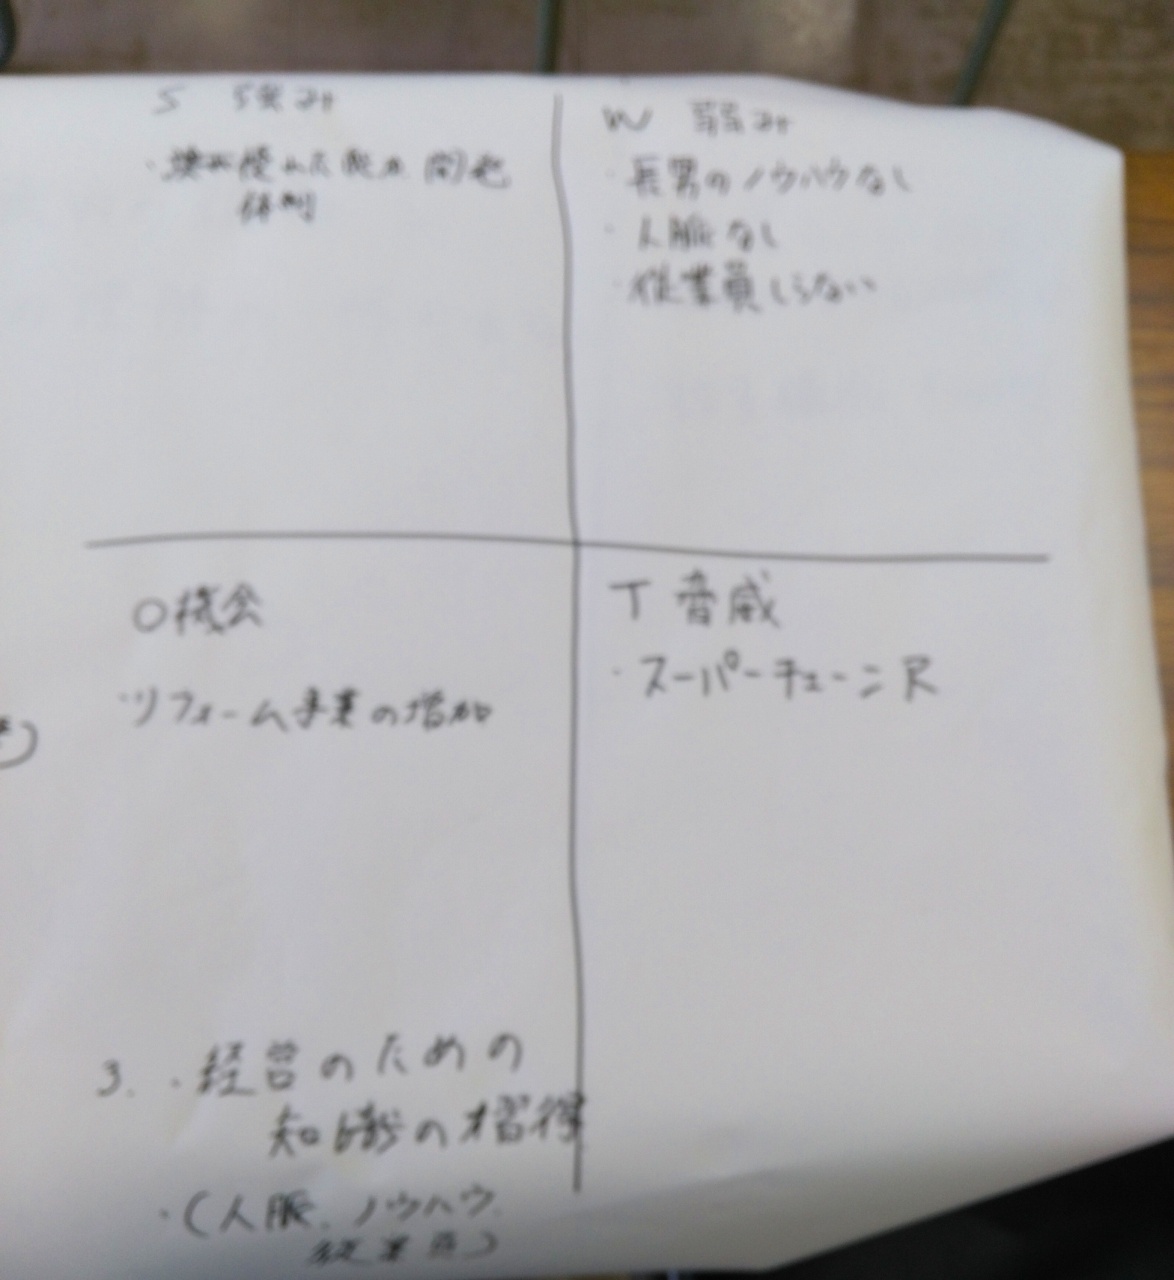 S 強み
・ 優れた商品 開発
体制
W 弱み
・長男のノウハウなし
・人脈なし
・従業員しらない
O機会
・リフォーム事業の増加
T 脅威
・スーパーチェーン
3. ・経営のための
知識の習得
・(人脈、ノウハウ、
従業員)